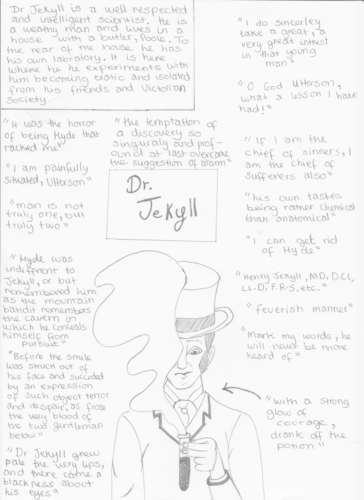 Dr Jekyll is a well respected
and intelligent scientist. He is
a weathy man and lives in a
house with a butler, Poole. To
the rear of the house he has
his own labratory. It is here
where he he experiments with
him becoming eratic and isolated
from his friends and Victorian
society.
"I do sincerley
take a great, a
very great intrest
in that young
man"
"O God Utterson,
what a lesson I have
had!"
"It was the horror
of being Hyde that
racked me"
"the temptation of
a discovery so
singuraly and prof-
ound at last overcame
the suggestion of alarm"
"If I am the
chief of sinners, I
am the chief of
sufferers also"
"I am painfully
situated, Utterson"
Dr.
Jekyll
"his own tastes
being rather chemical
than anatomical"
"man is not
truly one, but
truly two"
"I can get rid
of Hyde"
"Hyde was
indiffrent to
Jekyll, or but
remembered him
as the mountain
bandit remembers
the cavern in
which he conceals
himself from
pursuit"
"Henry Jekyll, M.D, D.C.L,
LL.D, F.R.S, etc."
"feverish manner"
"Mark my words, he
will never be more
heard of"
"Before the smile
was struck out of
his face and succeded
by an expression
of such abject terror
and despair, as froze
the very blood of
the two gentleman
below"
"with a strong
glow of
courage,
drank off the
potion"
"Dr Jekyll grew
pale the very lips,
and there came a
blackness about
his eyes"